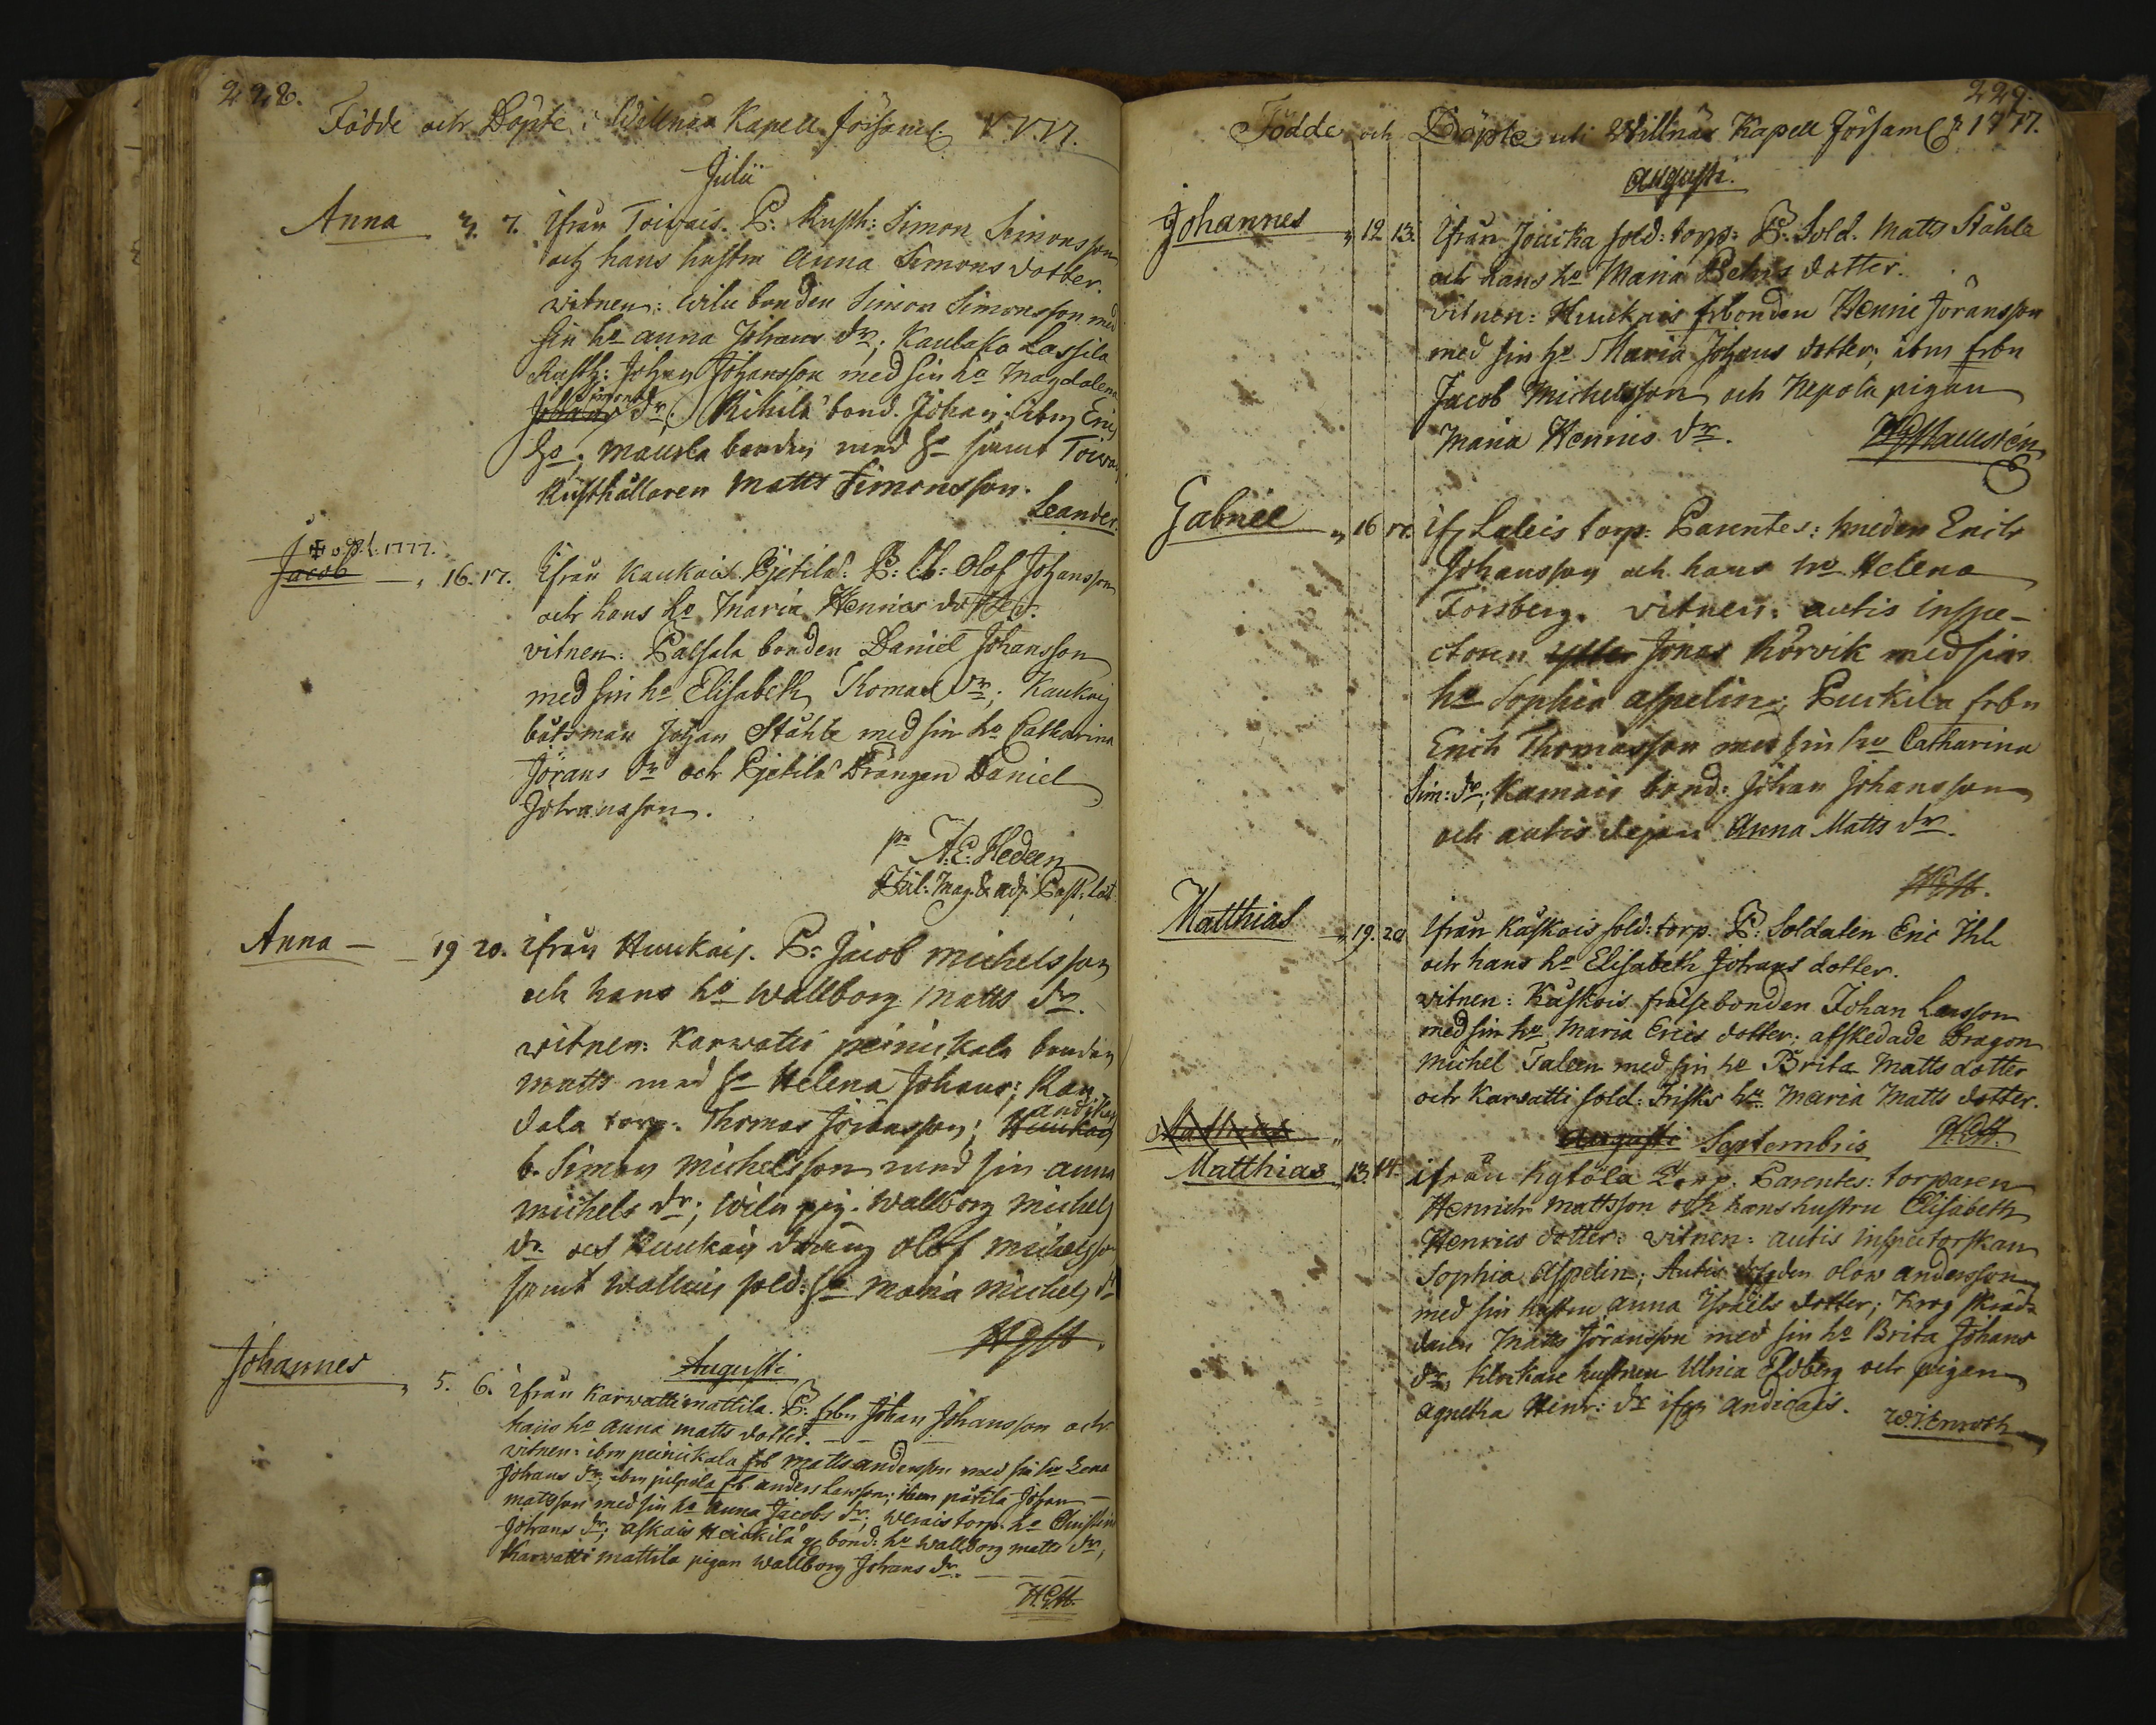 228.
Födde och Döpte i Willnäs Kapell Församl. 1777.
Julii
Anna 3. 7. ifrån Toivais. P: Rusth: Simon Simonsson
och hans hustru Anna Simons dotter.
vitnen: Wilu bonden Simon Simonsson med
sin ho Anna Johans dr; Kaulako Lassila
Rusth: Johan Johansson med sin ho Magdalena
Simons
Johans dr; Kihilä bond. Johan, ibm Eric
ho; Mausla bonden med ho samt Toiva
Rusthållaren Matts Simonsson.
Leander.
1777.
Jacob " 16. 17. ifrån Kaukais Pjetilä: P: Olof Johansson
och hans ho Maria Hennics dotter.
vitnen: Palsala bonden Daniel Johansson
med sin ho Elisabeth Thomas dr; Kaukais
båtsman Johan Ståhle med sin ho Catharina
Jörans dr och Pjetilä Drängen Daniel
Johansson.
pr A. E: Hedeen
Fil: Mag. & adj. Past:
Anna 19 20. ifrån Huukais. P: Jacob Michelsson
och hans ho Wallborg Matts dr.
vitnen: Karwatti peinikala bonden
Matts med ho Helena Johans; Ran
dala torp. Thomas Jöransson; Huukais
andikas
b. Simon Michelsson med sin Anna
Michels dr; Wilu pig. Wallborg Michels
dr och Huukais dräng Olof Michelsson
samt Wallais sold: ho Maria Michels dr
Augusti
Johannes " 5. 6. ifrån Karwatti mattila. P: frbn Johan Johansson och
hans ho Anna Matts dotter.
vitnen: ibm peinikala frb Matts Andersson med sin ho Lena
Johans dr ibm pilpola frb. Anders Larsson; ibm påtila Johan
Matsson med sin ho Anna Jacobs dr; Werais torp. ho Christin
Johans dr; Askais Heickilä bond: ho Wallborg Matts dr;
Karwatti mattila pigan Wallborg Johans dr.
229.
Födde och Döpte uti Willnäs Kapell Församl. 1777.
Augusti.
Johannes " 12 13. ifrån Joucka sold: torp: P: Sold. Matts Ståhle
och hans ho Maria Pehrs dotter.
vitnen: Huukais frbonden Henric Jöransson
med sin ho Maria Johans dotter; ibm frbn
Jacob Michelsson och Nepola pigan
Maria Hennis dr.
Gabriel " 16 17. if Laleis torp: Parentes: smeden Erich
Johansson och hans ho Helena
Forsberg. vitnen: autis inspe-
ctoren Jonas Körvik med sin
ho Sophia Aspelin; Puckila frbn
Erich Thomasson med sin ho Catharina
Sim: dr; Kamais bond: Johan Johansson
och autis dejan Anna Matts dr.
Matthias " 19. 20 ifrån Kåskois sold: torp. P: Soldaten Eric Ihl
och hans ho Elisabeth Johans dotter.
vitnen: Kåskois frälsebonden Johan Larsson
med sin ho Maria Erics dotter; afskedade Dragon
Michel Taleen med sin ho Brita Matts dotter
och Karvatti sold: Frisks ho Maria Matts dotter.
Matthias "
Augusti Septembris
Matthias " 13. 14. ifrån Kytöla Torp. Parentes: torparen
Henrich Mattsson och hans hustru Elisabeth
Henrics dotter: vitnen: autis inspectorskan
Sophia Aspelin; Autis Olow Andersson
med sin hustru Anna Ysraels dotter; Krog skräd
daren Matts Jöransson med sin ho Brita Johans
dr, Klockare hustrun Ulrica Eldberg och pigan
Agnetha Henr: dr ifrån andicais.